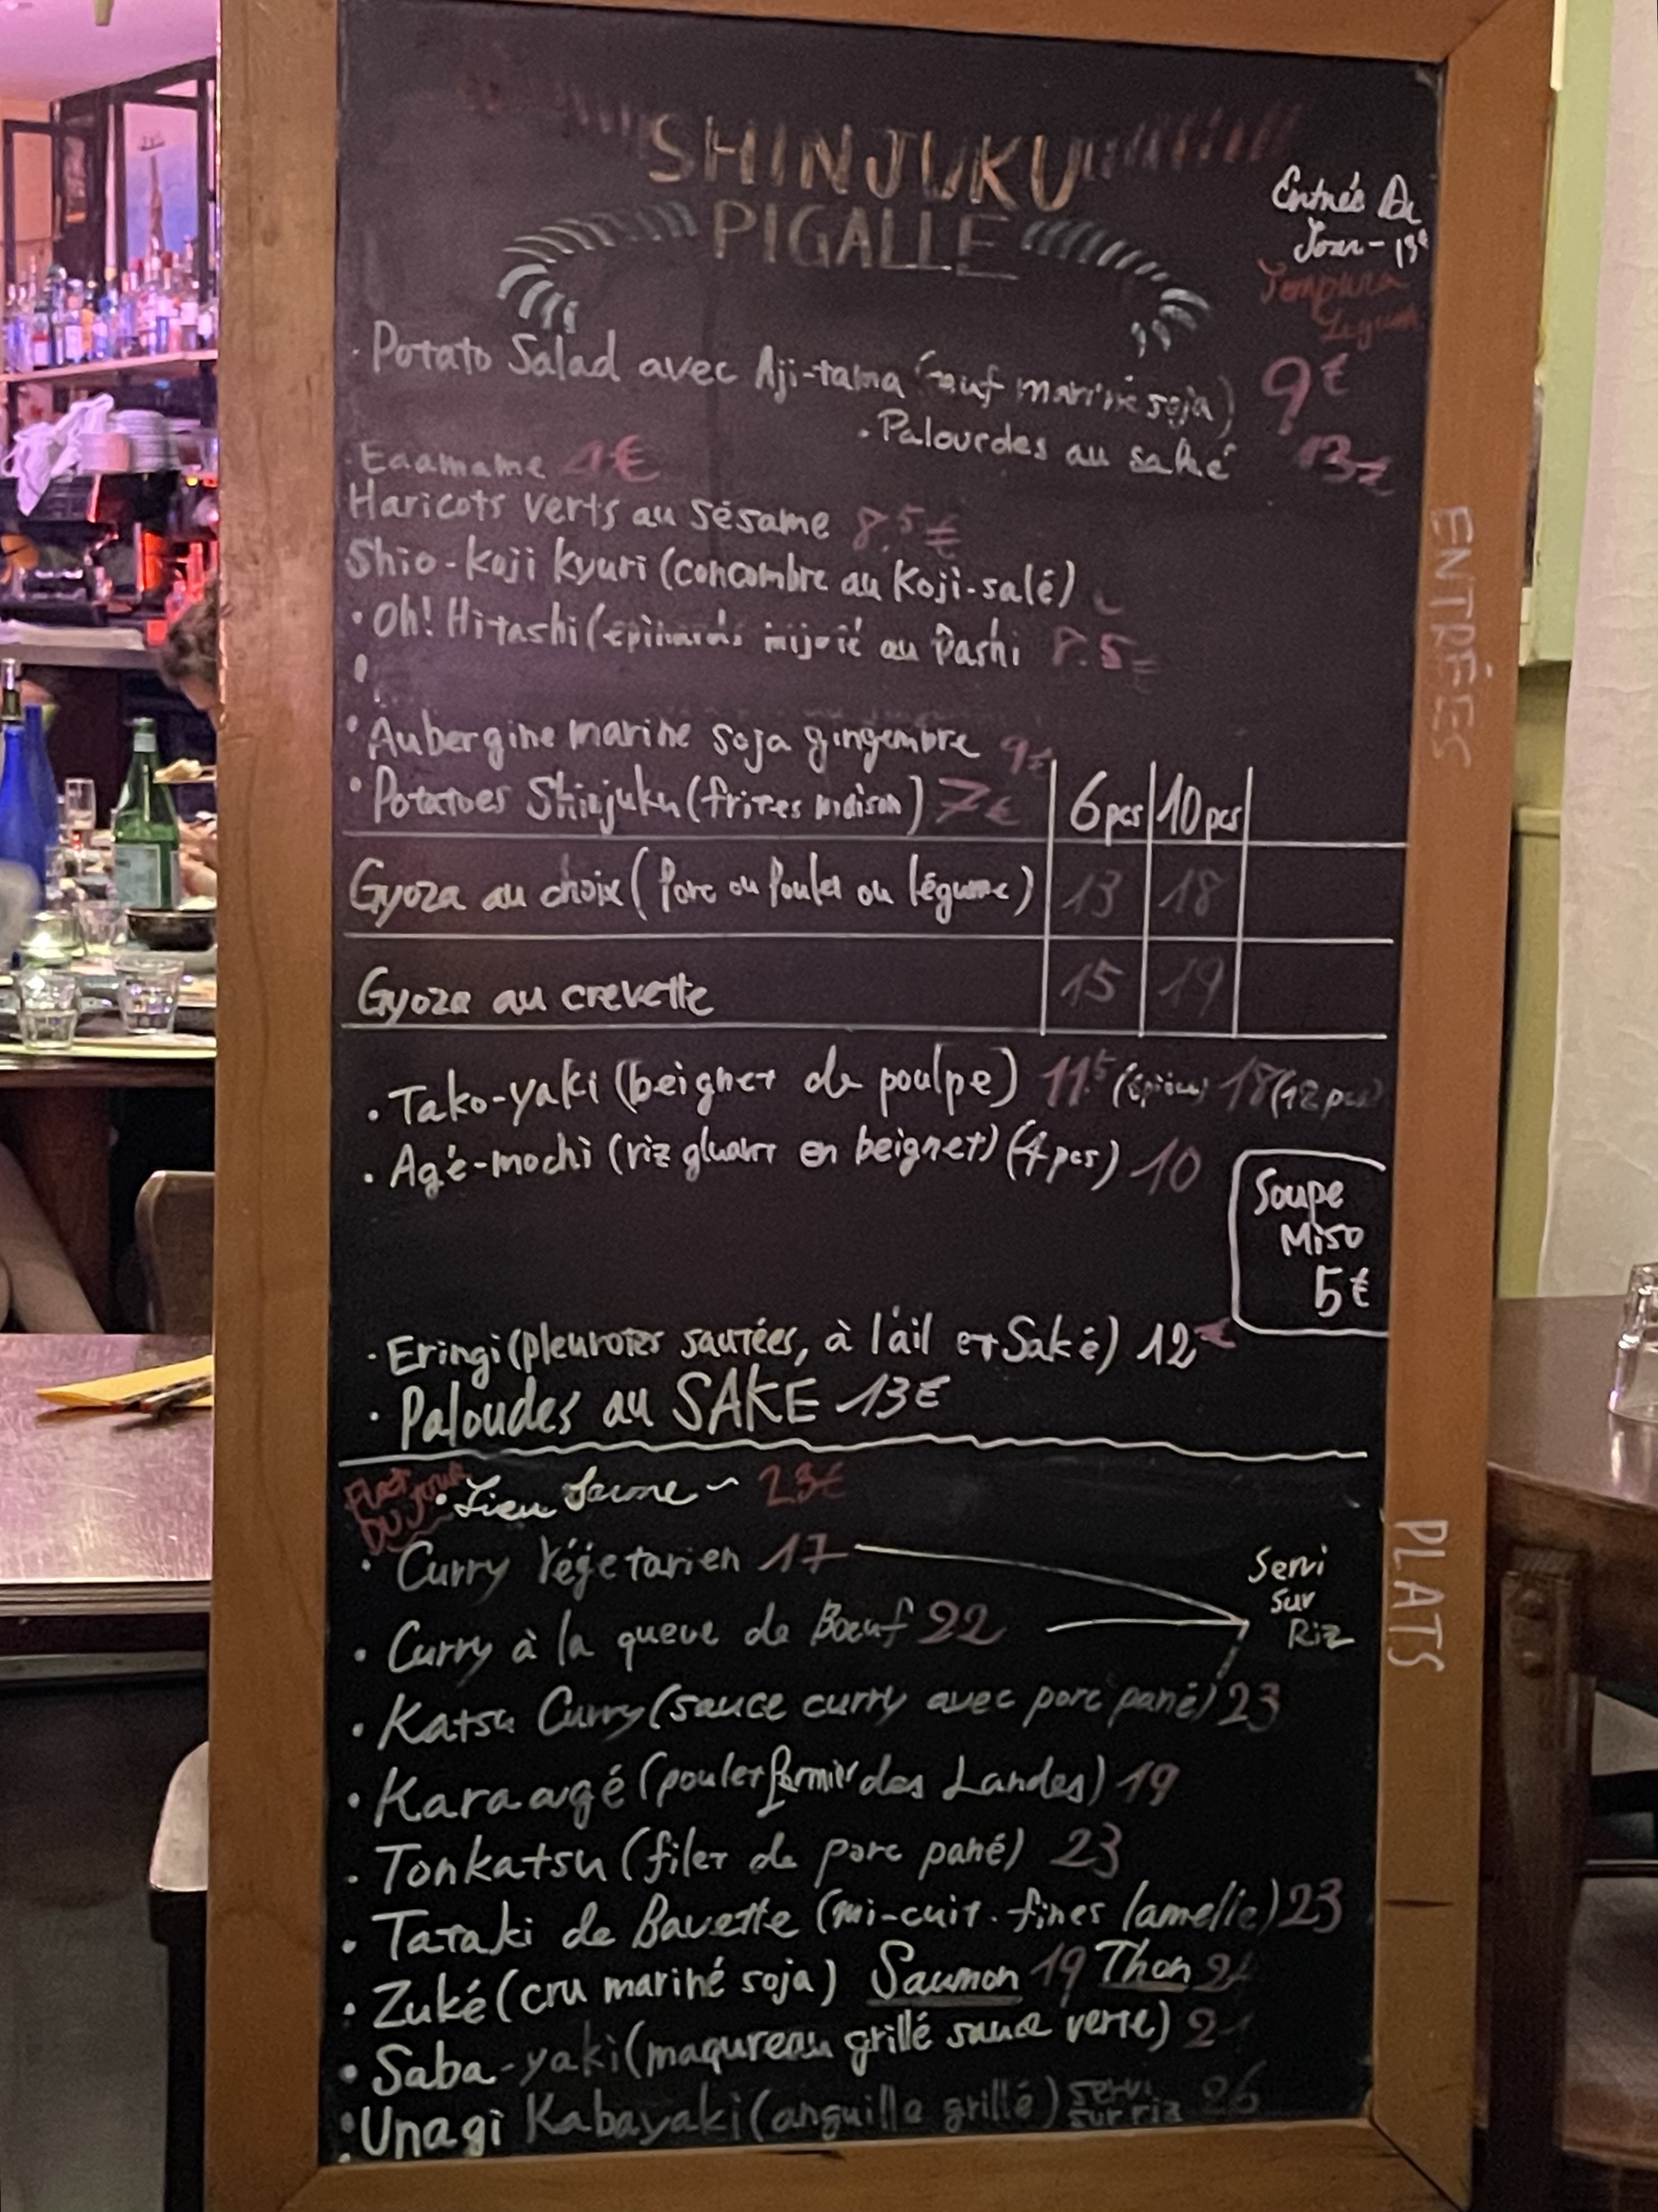 SHINJUKU
PIGALLE
Entrée Du
Jour - 13€
Tempura
Légum
· Potato Salad avec Aji-tama (œuf mariné soja) 9€
· Palourdes au saké 13€
· Edamame 4€
Haricots verts au sésame 8.5€
Shio-koji kyuri (concombre au Koji-salé)
· Oh! Hitashi (épinards mijoté au Dashi 8.5€
· Aubergine marine soja gingembre 9€
· Potatoes Shinjuku (frites maison) 7€
6pcs 10pcs
Gyoza au choix (Porc ou Poulet ou légume) 13 18
Gyoza au crevette 15 19
· Tako-yaki (beignet de poulpe) 11.5 18 (12 pcs)
· Agé-mochi (riz gluant en beignet) (4pcs) 10
Soupe
Miso
5€
· Eringi (pleurotes sautées, à l'ail et Saké) 12€
· Paloudes au SAKE 13€
ENTRÉES
Plat
DU jour
· Lieu Jaune ~ 23€
· Curry Végetarien 17
· Curry à la queue de Bœuf 22
Servi
sur
Riz
· Katsu Curry (sauce curry avec porc pané) 23
· Karaagé (poulet fermier des Landes) 19
· Tonkatsu (filet de porc pané) 23
· Tataki de Bavette (mi-cuit. fines lamelle) 23
· Zuké (cru mariné soja) Saumon 19 Thon
· Saba-yaki (maqureau grillé sauce verte)
· Unagi Kabayaki (anguille grillé) servi sur riz 26
PLATS